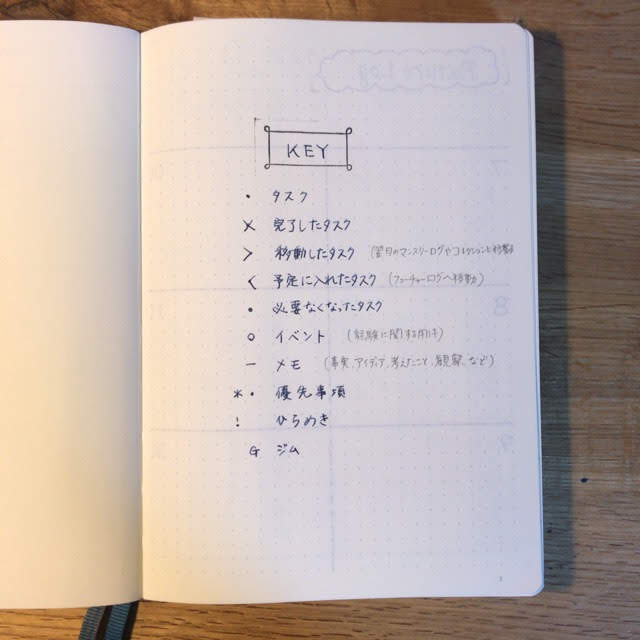 KEY
・ タスク
× 完了したタスク
> 移動したタスク (翌月のマンスリーログやコレクションに移動)
< 予定に入れたタスク (フューチャーログへ移動)
・ 必要なくなったタスク
○ イベント (経験に関する)
− メモ (事実、アイディア、考えたこと、観察、など)
*・ 優先事項
! ひらめき
G ジム